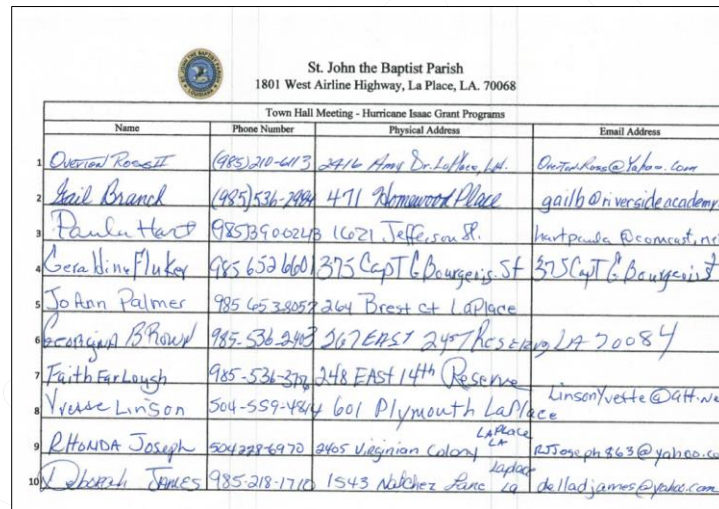 St. John the Baptist Parish
1801 West Airline Highway, La Place, LA. 70068
Town Hall Meeting - Hurricane Isaac Grant Programs
Name Phone Number Physical Address Email Address
1 Overton Ross II (985)210-6113 2416 Amy Dr. LaPlace, LA. OvertonRoss@Yahoo.com
2 Gail Branch (985)536-2984 471 Homewood Place gailb@riversideacademy.
3 Paula Hart (985)390-0243 1621 Jefferson St. hartpaula@comcast.ne
4 Geraldine Fluker 985 652 6601 375 Capt G Bourgeois. St 375 Capt G Bourgeois St
5 JoAnn Palmer 985 653 8057 264 Brest ct LaPlace
6 Georgina Brown 985-536-2403 267 EAST 24th Reserve LA 70084
7 Faith 985-536- 248 EAST 14th Reserve
8 Yvette Linson 504-559-4814 601 Plymouth LaPlace LinsonYvette@att.ne
9 RHONDA Joseph 504 228-6970 2405 Virginian Colony LAPLACE LA RJJoseph863@yahoo.co
10 Deborah JAMES 985-218-1710 1543 Natchez Lane Laplace la delladjames@yahoo.com